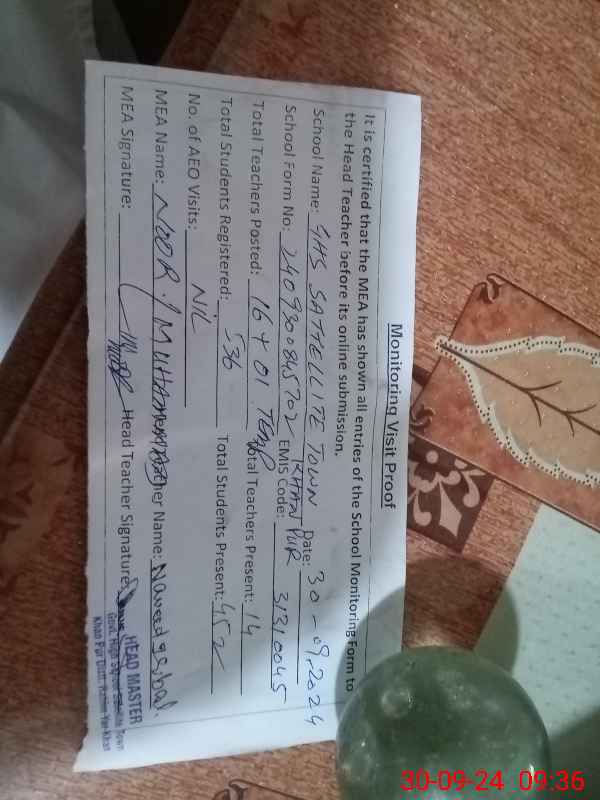 Monitoring Visit Proof
It is certified that the MEA has shown all entries of the School Monitoring Form to
the Head Teacher before its online submission.
School Name: GHS SATTELLITE TOWN KHAN PUR Date: 30-09-2024
School Form No: 2409300845702 EMIS Code: 31310045
Total Teachers Posted: 16 + 01 Temp Total Teachers Present: 14
Total Students Registered: 536 Total Students Present: 452
No. of AEO Visits: NIL
MEA Name: NOOR MUHAMMAD Teacher Name: Naveed Iqbal.
MEA Signature: Head Teacher Signature:
HEAD MASTER
Govt. High School Satellite Town
Khan Pur Distt. Rahim Yar Khan
30-09-24 09:36